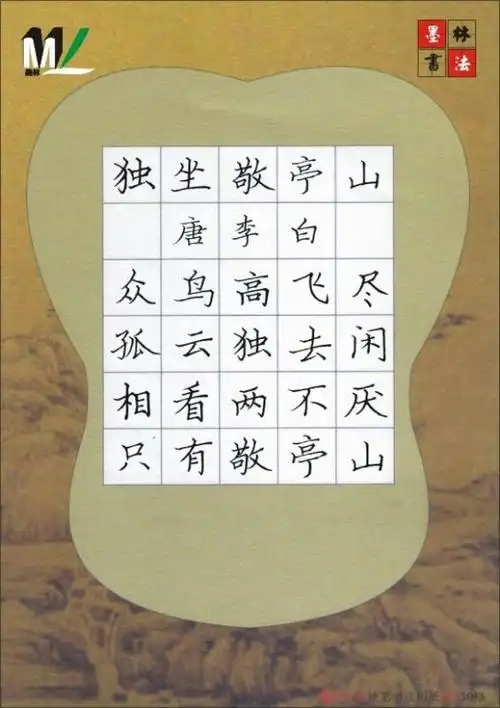 墨林
書法
墨林
独坐敬亭山
唐李白
众鸟高飞尽
孤云独去闲
相看两不厌
只有敬亭山